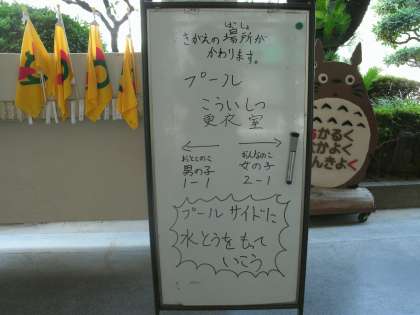 ばしょ
きがえの場所が
かわります。
プール
こういしつ
更衣室
← →
おとこのこ おんなのこ
男の子 女の子
1-1 2-1
プールサイドに
水とうをもって
いこう
あかるく
なかよく
げんきよく